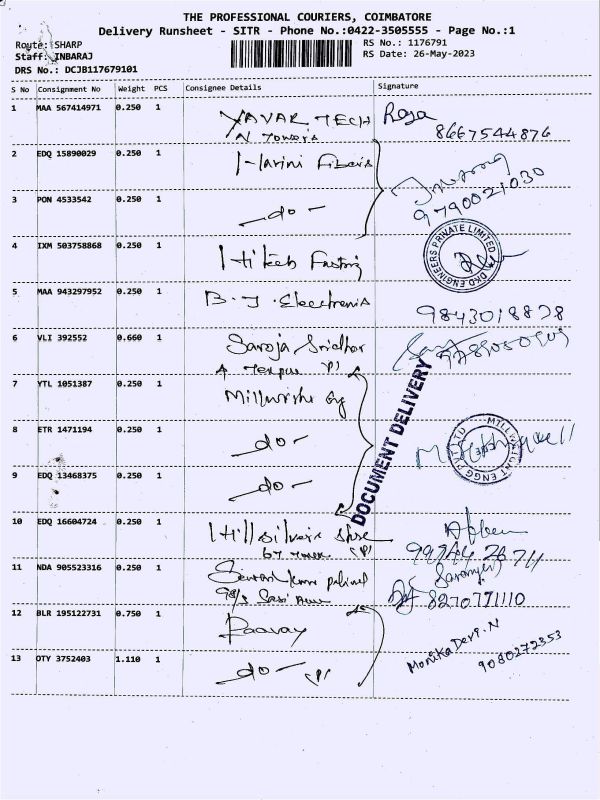 THE PROFESSIONAL COURIERS, COIMBATORE
Delivery Runsheet - SITR - Phone No.:0422-3505555 - Page No.:1
Route: SHARP
Staff: INBARAJ
DRS No.: DCJB117679101
RS No.: 1176791
RS Date: 26-May-2023
S No Consignment No Weight PCS Consignee Details Signature
1 MAA 567414971 0.250 1 YAVAR TECH
N Towers
8667544876
2 EDQ 15890029 0.250 1 Harini Fibers
9790021030
3 PON 4533542 0.250 1 -do-
4 IXM 503758868 0.250 1 Hitech
DKD ENGINEERS PRIVATE LIMITED
5 MAA 943297952 0.250 1 B.J.Electronis
9843018878
6 VLI 392552 0.660 1 Saroja Sridhor
7 YTL 1051387 0.250 1
DOCUMENT DELIVERY
8 ETR 1471194 0.250 1 -do-
MILLWRIGHT ENGG PV LTD
9 EDQ 13468375 0.250 1 -do-
10 EDQ 16604724 0.250 1
11 NDA 905523316 0.250 1
Saranya
8270771110
12 BLR 195122731 0.750 1 Paavay
Monika Devi.N
9080272353
13 OTY 3752403 1.110 1 -do- (P)